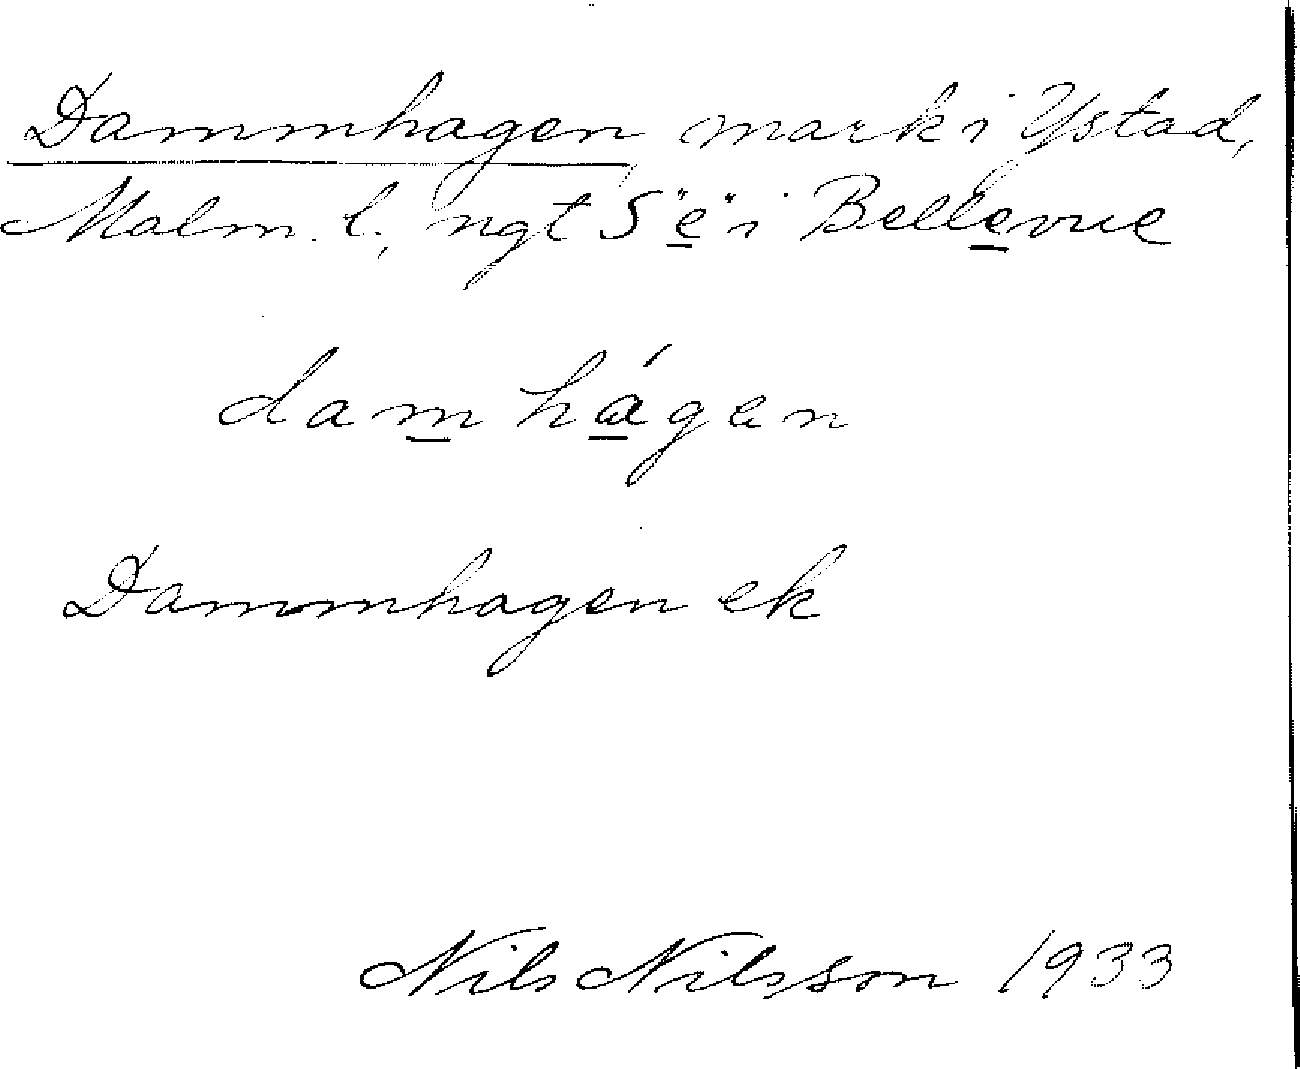 Dammhagen, mark i Ystad,
Malm. l., ngt S "e" i Bellevue
dam hágen
Dammhagen ek
Nils Nilsson 1933